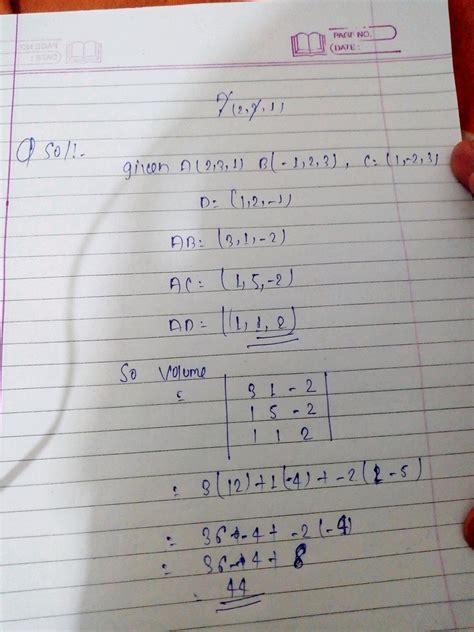 PAGE NO.
DATE:
A(2,3,1)
Sol:-
given A(2,3,1) B(-1,2,3), C=(1,-2,3)
D=(1,2,-1)
AB=(3,1,-2)
AC=(1,5,-2)
AD=(1,1,2)
So Volume
=
3 1 -2
1 5 -2
1 1 2
= 3(12)+1(-4)+-2(1-5)
= 36+-4+-2(-4)
= 36-4+8
= 44